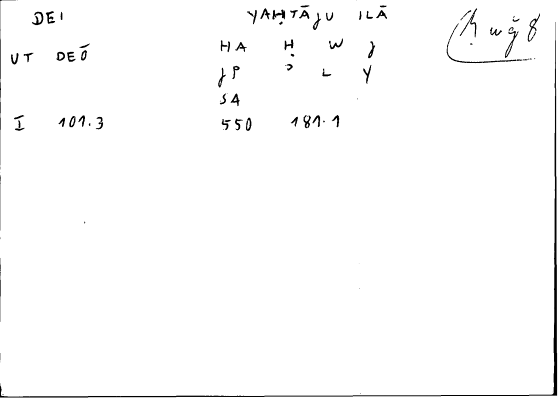 DEI YAḤTĀJU ILĀ
Ḥ w ǧ 8
UT DEŌ HA Ḥ W J
JP ʾ L Y
SA
I 101.3 550 181.1